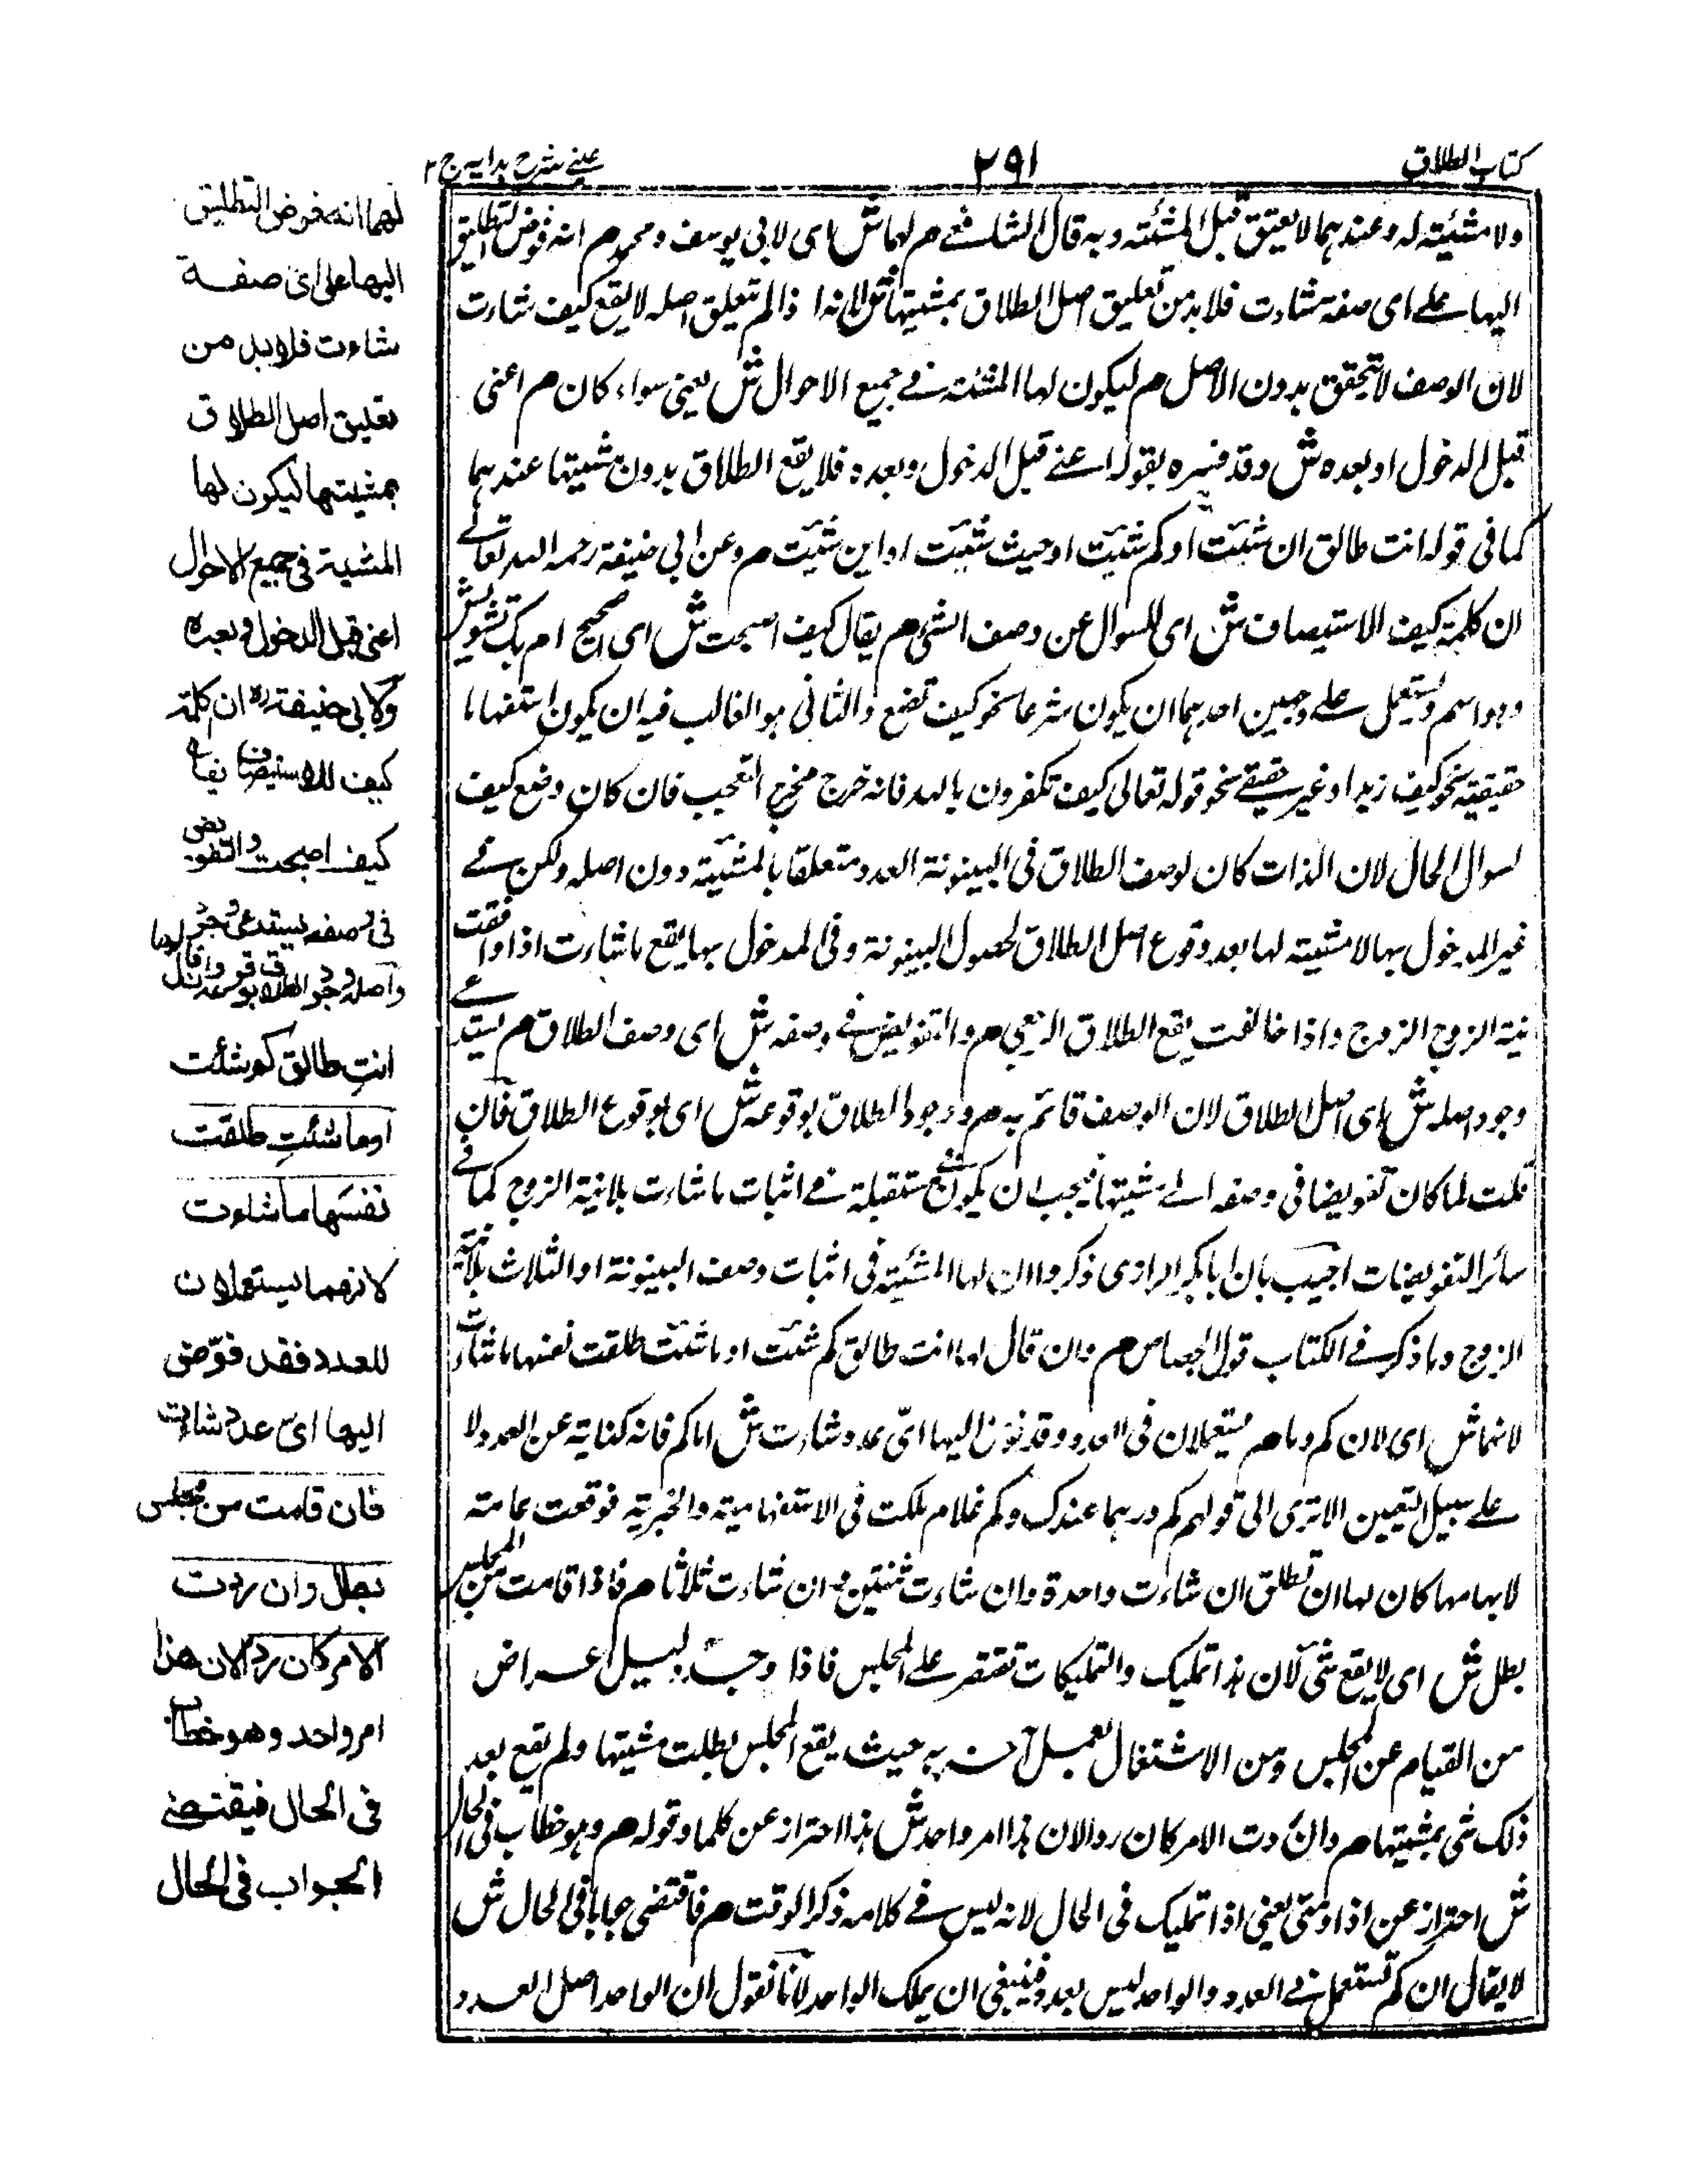 كتاب الطلاق
٢٩١
عينى شرح هدايه ج ٢
ولا مشيئته له وعندهما لا يعتق قبل المشئته وبه قال الشافعے م لهما ش اى لابى يوسف ومحمد م انه فوض التطليق
اليها علے اى صفة شاءت فلا بد من تعليق اصل الطلاق بمشيتها ش لانه اذا لم يتعلق اصله لا يقع كيف شاءت
لان الوصف لا يتحقق بدون الاصل م ليكون لها المشئته فے جميع الاحوال ش يعنى سواء كان م اعنى
قبل الدخول او بعده ش وقد فسره بقوله اعنے قبل الدخول وبعده فلا يقع الطلاق بدون مشيتها عندهما
كما فى قوله انت طالق ان شئت او كم شئت او حيث شئت او اين شئت م وعن ابى حنيفة رحمه الله تعالے
ان كلمة كيف الاستيصاف ش اى للسوال عن وصف الشئ م يقال كيف اصبحت ش اى صحيح ام بك تشويش
وهو اسم ويستعمل علے وجهين احدهما ان يكون شرعا نحو كيف تضع والثانى هو الغالب فيه ان يكون استفهاما
حقيقيته نحو كيف زيد او غير حقيقے نحو قوله تعالى كيف تكفرون بالله فانه خرج مخرج التعجب فان كان وضع كيف
لسوال الحال لان الذات كان لوصف الطلاق فى البينونة العدد متعلقا بالمشيئته دون اصله ولكن فے
غير المدخول بها لا مشيئته لها بعد وقوع اصل الطلاق لحصول البينونة وفى المدخول بها يقع ما شاءت اذا وافقت
نية الزوج الزوج واذا خالفت يقع الطلاق الرجعى م والتفويض فے وصفه ش اى وصف الطلاق م يستدعے
وجود اصله ش اى اصل الطلاق لان الوصف قائم به م ووجود الطلاق بوقوعه ش اى بوقوع الطلاق فان
قلت لما كان تفويضا فى وصفه الے مشيتها فيجب ان يكون مستقبلة فے اثبات ما شاءت بلا نية الزوج كما فے
سائر التفويضات اجيب بان ابا بكر الرازى ذكر وان لها المشئيته فى اثبات وصف البينونة او الثلاث بلا نية
الزوج وما ذكر فے الكتاب قول الجصاص م وان قال لها انت طالق كم شئت او ما شئت طلقت نفسها ما شاءت
لانهما ش اى لان كم وما م يستعملان فى العدد وقد فوض اليها اىّ عدد شاءت ش اما كم فانه كناية عن العدد لا
علے سبيل التعيين الا ترى الى قولهم كم درهما عندك وكم غلام ملكت فى الاستفهامية والخبرية فوقعت عامته
لابهامها كان لها ان تطلق ان شاءت واحدة وان شاءت ثنتين وان شاءت ثلاثا م فاذا قامت من المجلس
بطل ش اى لا يقع شئ لان هذا تمليك والتمليكات تقتصر علے المجلس فاذا وجد دليل اعراض
من القيام عن المجلس ومن الاشتغال بعمل آخر به حيث يقع المجلس بطلت مشيتها ولم يقع بعد
ذلك شئ بمشيتها م وان ردت الامر كان ردا لان هذا امر واحد ش هذا احتراز عن كلما وقوله م وهو خطاب فى الحال
ش احتراز عن اذا ومتى يعنى اذا تمليك فى الحال لانه ليس فے كلامه ذكر الوقت م فاقتضى جوابا فى الحال ش
لا يقال ان كم تستعمل فے العدد والواحد ليس بعدد فينبغى ان يملك الواحد لانا نقول ان الواحد اصل العدد
لهما انه فوض التطليق
اليها على اى صفة
شاءت فلا بد من
تعليق اصل الطلاق
بمشيتها ليكون لها
المشية فى جميع الاحوال
اعنى قبل الدخول وبعده
ولابى حنيفة ره ان كلمة
كيف للاستيصاف يقال
كيف اصبحت والتفويض
فى وصفه يستدعى وجود
اصله ووجود الطلاق بوقوعه وان قال لها
انتِ طالق كم شئت
او ما شئتِ طلقت
نفسَها ما شاءت
لانهما يستعملان
للعدد فقد فوّض
اليها اىّ عدد شاءت
فان قامت من مجلس
بطل وان ردت
الامر كان ردا لان هذا
امر واحد وهو خطاب
فى الحال فيقتضے
الجواب فى الحال